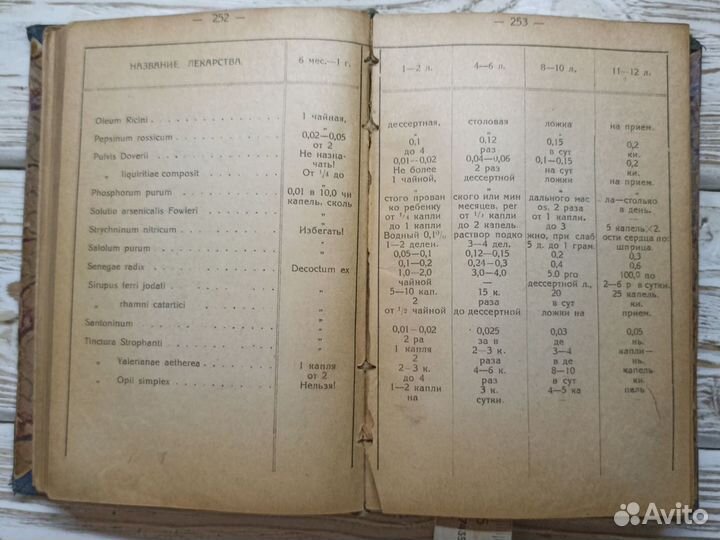 — 252 —
НАЗВАНИЕ ЛЕКАРСТВА
6 мес.—1 г.
Oleum Ricini
1 чайная,
Pepsinum rossicum
0,02—0,05
от 2
Pulvis Doverii
Не назна-
чать!
„ liquiritiae composit
От 1/4 до
„
Phosphorum purum
0,01 в 10,0 чи
капель, сколь
Solutio arsenicalis Fowleri
„
Strychninum nitricum
Избегать!
Salolum purum
„
Senegae radix
Decoctum ex
Sirupus ferri jodati
„
„ rhamni catartici
„
Santoninum
„
Tinctura Strophanti
„
„ Valerianae aetherea
1 капля
от 2
„ Opii simplex
Нельзя!
— 253 —
1—2 л. 4—6 л. 8—10 л. 11—12 л.
дессертная, столовая ложка на прием.
0,1 0,12 0,15 0,2
до 4 раз в сут ки.
0,01—0,02 0,04—0,06 0,1—0,15 0,2
Не более 2 раз на сут ки.
1 чайной, дессертной ложки на прием.
стого прован ского или мин дального мас ла—столько
ко ребенку месяцев, рег os. 2 раза в день.
от 1/4 капли от 1/2 капли от 1 капли.
до 1 капли до 2 капель до 3 5 капель ×2.
Водный 0,1% раствор подко жно, при слаб ости сердца по:
1—2 делен. 3—4 дел. 5 д. до 1 грам. шприца.
0,05—0,1 0,12—0,15 0,2 0,3
0,1—0,2 0,24—0,3 0,4 0,6
1,0—2,0 3,0—4,0 5.0 pro 100,0 по
чайной— — дессертной л., 2—6 р в сутки.
5—10 кап. 15 к. 20 25 капель.
2 раза в сут ки.
от 1/2 чайной до дессертной ложки на прием.
0,01—0,02 0,025 0,03 0,05
2 ра за в де нь.
1 капля 2—3 к. 3—4 капли—
2 раза в де нь.
2—3 к. 4—6 к. 8—10 капель
до 4 раз в сут ки.
1—2 капли 3 к. 4—5 ка пель
на сутки. —
Avito